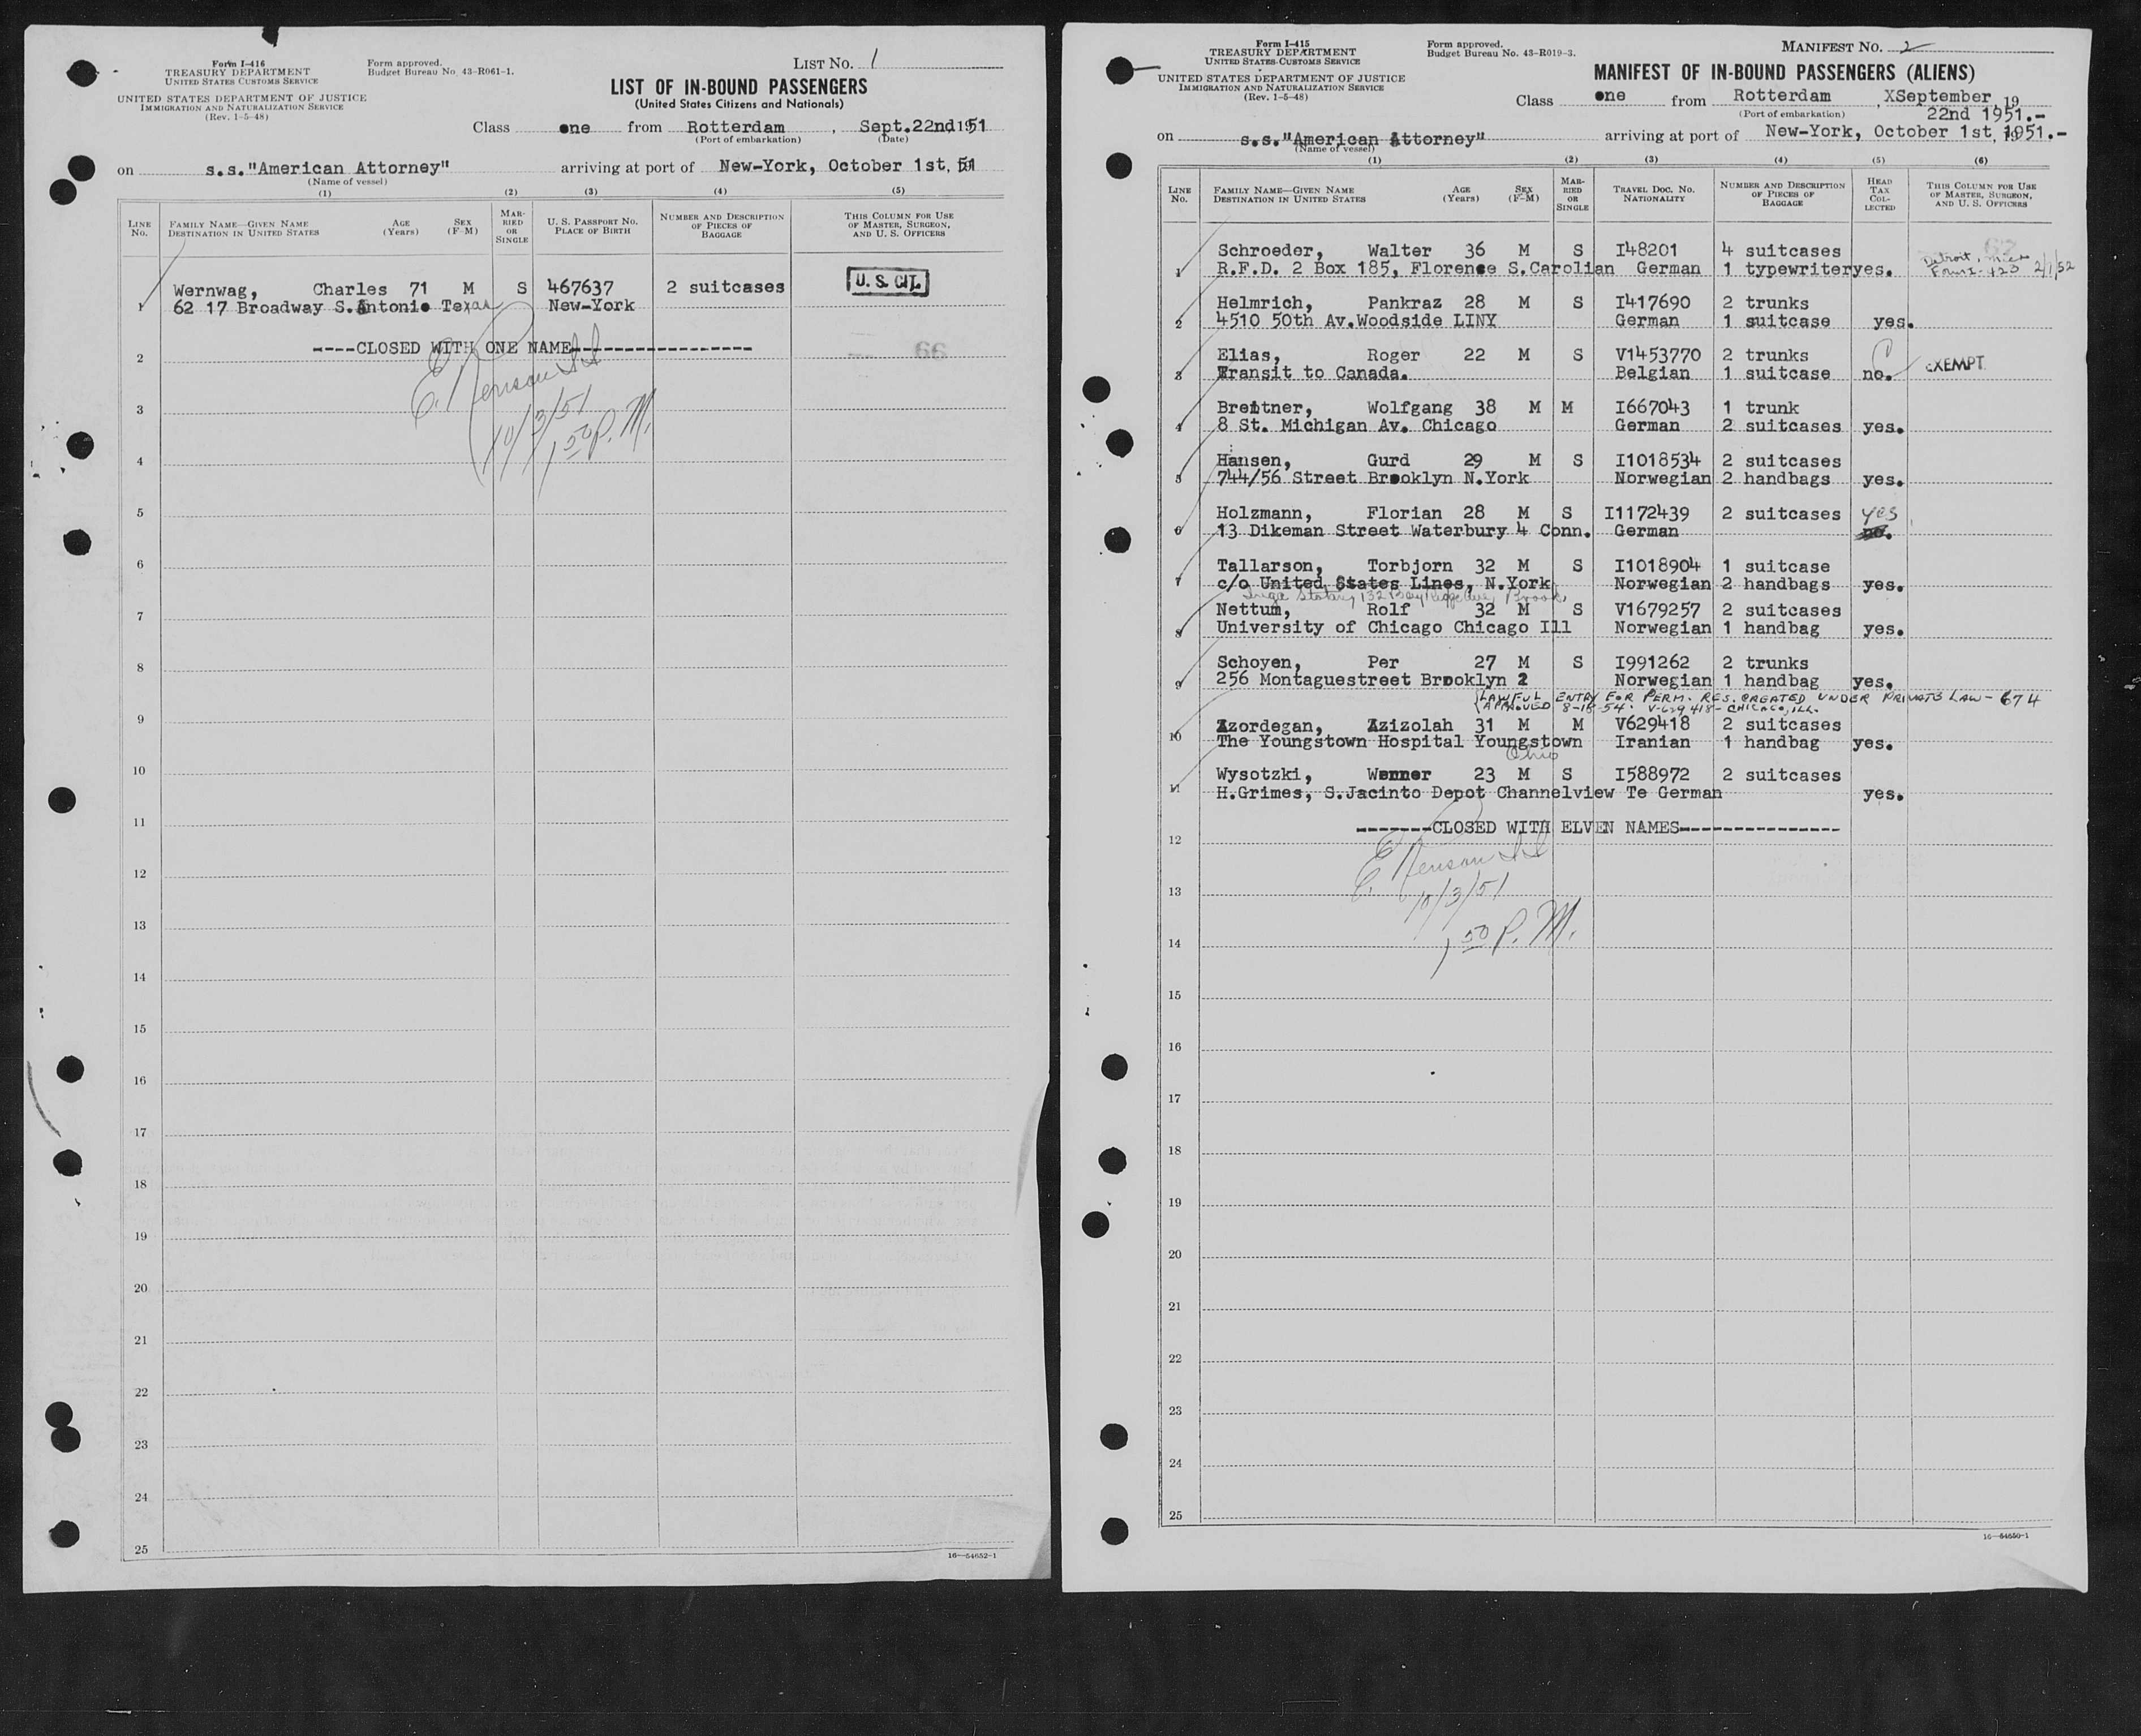 Form I-416
TREASURY DEPARTMENT
UNITED STATES CUSTOMS SERVICE
UNITED STATES DEPARTMENT OF JUSTICE
IMMIGRATION AND NATURALIZATION SERVICE
(Rev. 1-5-48)
Form approved.
Budget Bureau No. 43-R061-1.
LIST No. 1
LIST OF IN-BOUND PASSENGERS
(United States Citizens and Nationals)
Class one from Rotterdam, Sept.22nd 1951
(Port of embarkation) (Date)
on s.s."American Attorney" arriving at port of New-York, October 1st, 51
(Name of vessel)
(1) (2) (3) (4) (5)
LINE No. FAMILY NAME—GIVEN NAME DESTINATION IN UNITED STATES AGE (Years) SEX (F-M) MARRIED OR SINGLE U. S. PASSPORT NO. PLACE OF BIRTH NUMBER AND DESCRIPTION OF PIECES OF BAGGAGE THIS COLUMN FOR USE OF MASTER, SURGEON, AND U. S. OFFICERS
Wernwag, Charles 71 M S 467637 2 suitcases U. S. CIT.
1 62 17 Broadway S.Antonio Texas New-York
2 ----CLOSED WITH ONE NAME------------------
E. Nenson
3 10/3/51
4 1 50 P.M.
5
6
7
8
9
10
11
12
13
14
15
16
17
18
19
20
21
22
23
24
25
16—54652-1
Form I-415
TREASURY DEPARTMENT
UNITED STATES CUSTOMS SERVICE
UNITED STATES DEPARTMENT OF JUSTICE
IMMIGRATION AND NATURALIZATION SERVICE
(Rev. 1-5-48)
Form approved.
Budget Bureau No. 43-R019-3.
MANIFEST No. 2
MANIFEST OF IN-BOUND PASSENGERS (ALIENS)
Class one from Rotterdam, XSeptember, 19
(Port of embarkation) 22nd 1951.-
on s.s."American Attorney" arriving at port of New-York, October 1st, 1951.-
(Name of vessel)
(1) (2) (3) (4) (5) (6)
LINE No. FAMILY NAME—GIVEN NAME DESTINATION IN UNITED STATES AGE (Years) SEX (F-M) MARRIED OR SINGLE TRAVEL DOC. NO. NATIONALITY NUMBER AND DESCRIPTION OF PIECES OF BAGGAGE HEAD TAX COLLECTED THIS COLUMN FOR USE OF MASTER, SURGEON, AND U. S. OFFICERS
Schroeder, Walter 36 M S I48201 4 suitcases Detroit, Mich
1 R.F.D. 2 Box 185, Florense S.Carolian German 1 typewriter yes. Form I-423 2/1/52
Helmrich, Pankraz 28 M S I417690 2 trunks
2 4510 50th Av.Woodside LINY German 1 suitcase yes.
Elias, Roger 22 M S V1453770 2 trunks
3 Transit to Canada. Belgian 1 suitcase no. EXEMPT
Breitner, Wolfgang 38 M M I667043 1 trunk
4 8 St. Michigan Av. Chicago German 2 suitcases yes.
Hansen, Gurd 29 M S I1018534 2 suitcases
5 744/56 Street Brooklyn N.York Norwegian 2 handbags yes.
Holzmann, Florian 28 M S I1172439 2 suitcases yes
6 13 Dikeman Street Waterbury 4 Conn. German no.
Tallarson, Torbjorn 32 M S I1018904 1 suitcase
7 c/o United States Lines, N.York Norwegian 2 handbags yes.
132 Bay Ridge Ave, Brook.
Nettum, Rolf 32 M S V1679257 2 suitcases
8 University of Chicago Chicago Ill Norwegian 1 handbag yes.
Schoyen, Per 27 M S I991262 2 trunks
9 256 Montaguestreet Brooklyn 2 Norwegian 1 handbag yes.
LAWFUL ENTRY FOR PERM. RES. CREATED UNDER PRIVATE LAW - 674
APPROVED 8-18-54. V-629418 - CHICAGO, ILL.
Azordegan, Azizolah 31 M M V629418 2 suitcases
10 The Youngstown Hospital Youngstown Iranian 1 handbag yes.
Ohio
Wysotzki, Wenner 23 M S I588972 2 suitcases
11 H.Grimes, S.Jacinto Depot Channelview Te German yes.
-------CLOSED WITH ELVEN NAMES---------------
12
E. Nenson
13 10/3/51
14 1 50 P.M.
15
16
17
18
19
20
21
22
23
24
25
16—54650-1